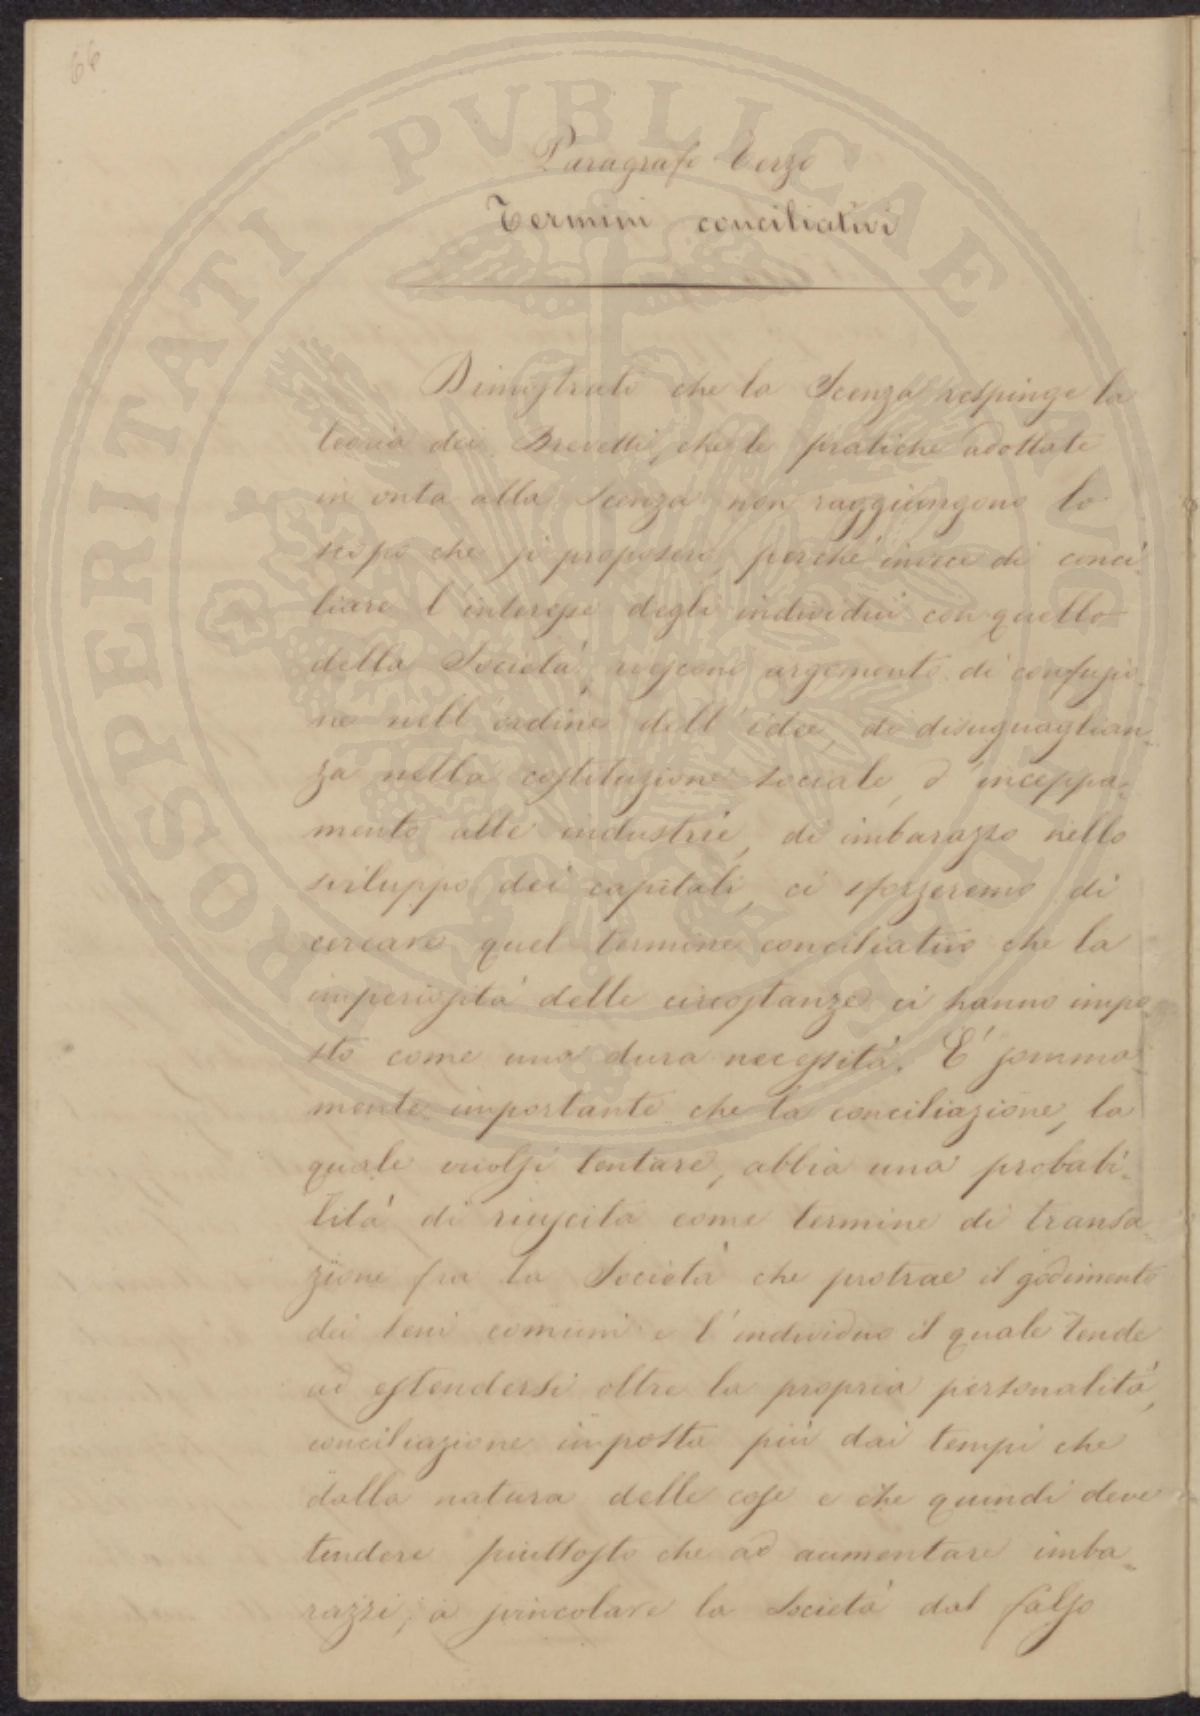 66
PROSPERITATI PUBLICAE
Paragrafo Terzo
Termini conciliativi
Dimostrato che la Scenza respinge la
teoria dei Brevetti, che le pratiche adottate
in onta alla Scenza non raggiungono lo
scopo che si proposero, perché invece di conci-
liare l'interesse degli individui con quello
della Società, riescono argomento di confusio-
ne nell'ordine dell'idee, di disuguaglian-
za nella costituzione sociale, d'inceppa-
mento alle industrie, di imbarazzo nello
sviluppo dei capitali, ci sforzeremo di
cercare quel termine conciliativo che la
imperiosità delle circostanze ci hanno impo-
sto come una dura necessità. E' somma-
mente importante che la conciliazione, la
quale vuolsi tentare, abbia una probabi-
lità di riuscita come termine di transa-
zione fra la Società che protrae il godimento
dei beni comuni e l'individuo il quale tende
ad estendersi oltre la propria personalità,
conciliazione imposta più dai tempi che
dalla natura delle cose e che quindi deve
tendere piuttosto che ad aumentare imba-
razzi, a svincolare la Società dal falso